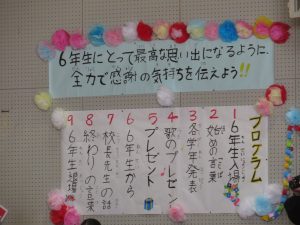 6年生にとって最高な思い出になるように、
全力で感謝の気持ちを伝えよう!!
プログラム
1 6年生入場
2 始めの言葉
3 各学年発表
4 歌のプレゼント
5 プレゼント
6 6年生から
7 校長先生の話
8 終わりの言葉
9 6年生退場